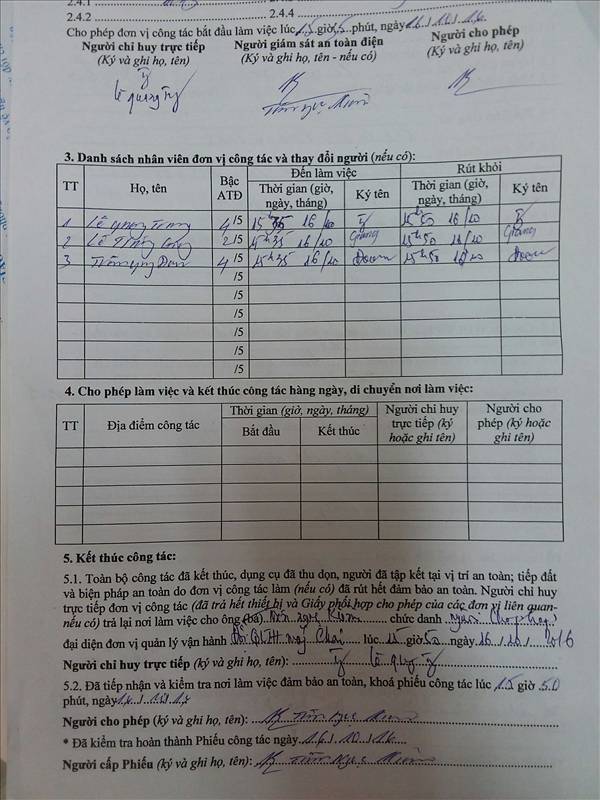 2.4.1
2.4.2 2.4.4
Cho phép đơn vị công tác bắt đầu làm việc lúc 15 giờ 35 phút, ngày 16 / 10 / 16
Người chỉ huy trực tiếp Người giám sát an toàn điện Người cho phép
(Ký và ghi họ, tên) (Ký và ghi họ, tên - nếu có) (Ký và ghi họ, tên)
Lê Quang
3. Danh sách nhân viên đơn vị công tác và thay đổi người (nếu có):
TT Họ, tên Bậc ATĐ Đến làm việc Rút khỏi
Thời gian (giờ, ngày, tháng) Ký tên Thời gian (giờ, ngày, tháng) Ký tên
1 Lê Quang 4/5 15h35 16/10 15h50 16/10
2 Lê 2/5 15h35 16/10 Giảng 15h50 16/10 Giảng
3 Trần 4/5 15h35 16/10 Đoan 15h50 16/10 Đoan
/5
/5
/5
/5
/5
4. Cho phép làm việc và kết thúc công tác hàng ngày, di chuyển nơi làm việc:
TT Địa điểm công tác Thời gian (giờ, ngày, tháng) Người chỉ huy trực tiếp (ký hoặc ghi tên) Người cho phép (ký hoặc ghi tên)
Bắt đầu Kết thúc
5. Kết thúc công tác:
5.1. Toàn bộ công tác đã kết thúc, dụng cụ đã thu dọn, người đã tập kết tại vị trí an toàn; tiếp đất
và biện pháp an toàn do đơn vị công tác làm (nếu có) đã rút hết đảm bảo an toàn. Người chỉ huy
trực tiếp đơn vị công tác (đã trả hết thiết bị và Giấy phối hợp cho phép của các đơn vị liên quan-
nếu có) trả lại nơi làm việc cho ông (bà) chức danh Người cho phép
đại diện đơn vị quản lý vận hành Đội QLVH lúc 15 giờ 50 ngày 16 / 10 / 2016
Người chỉ huy trực tiếp (ký và ghi họ, tên): Lê
5.2. Đã tiếp nhận và kiểm tra nơi làm việc đảm bảo an toàn, khoá phiếu công tác lúc 15 giờ 50
phút, ngày 16 / 10 / 16
Người cho phép (ký và ghi họ, tên): Trần
* Đã kiểm tra hoàn thành Phiếu công tác ngày 16 / 10 / 16
Người cấp Phiếu (ký và ghi họ, tên): Trần